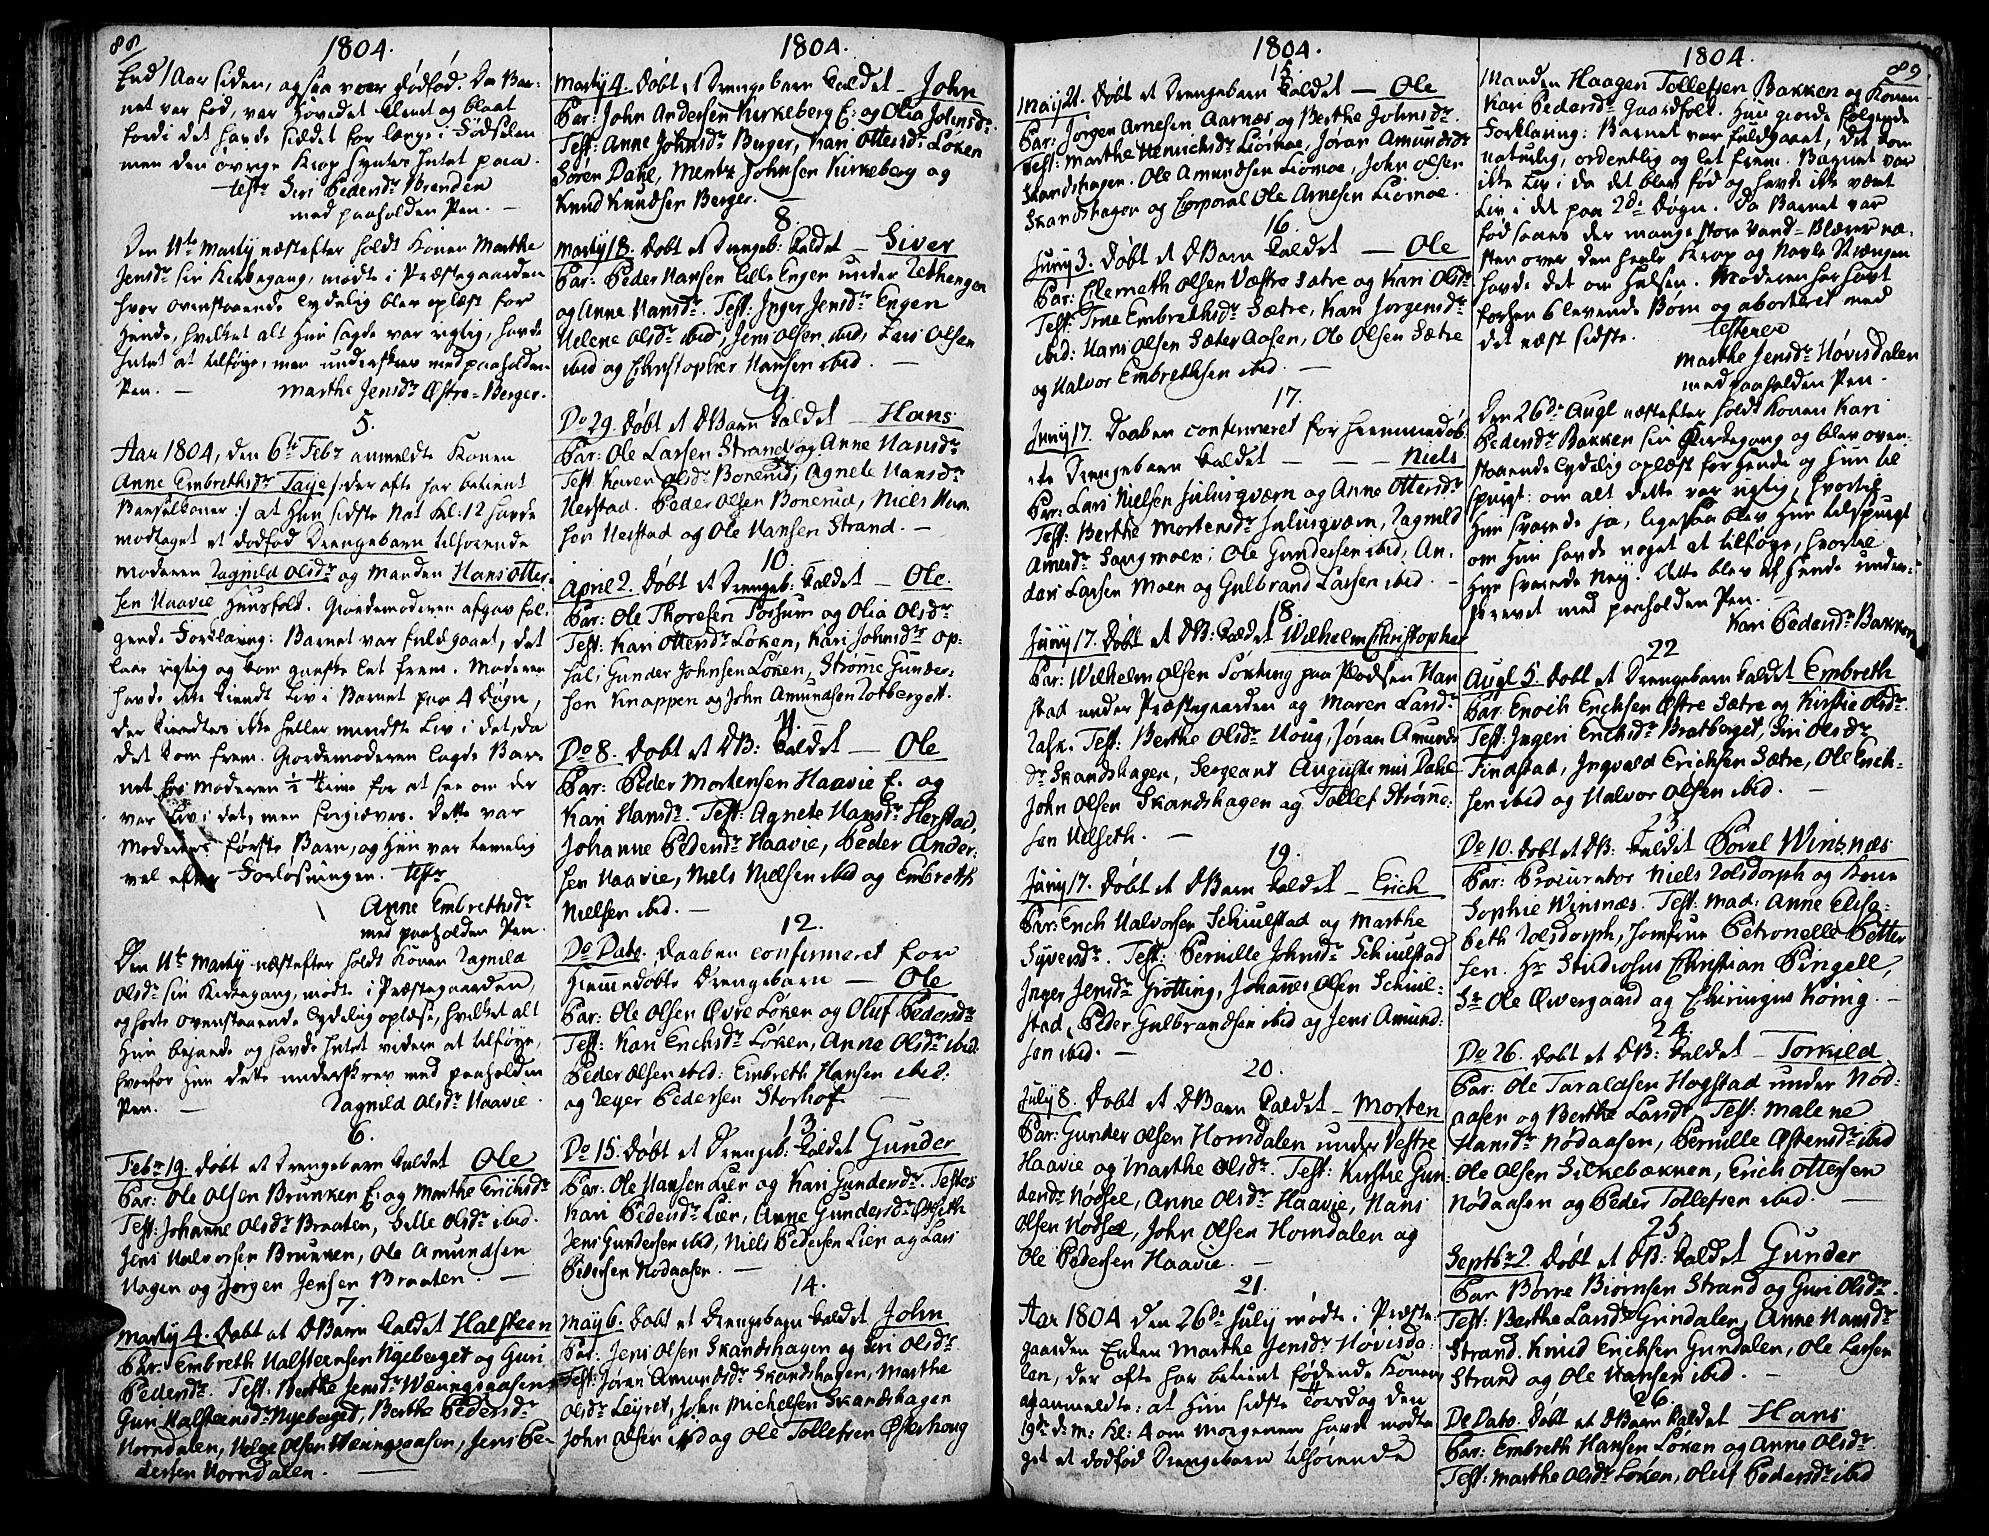 88
1804.
End 1 Aar siden, og saa var dödfød. Da Bar-
net var fød, var Hovedet blaat og blaat
fordi det havde siddet for længe i Födselen
men den övrige Krop syntes Intet paa.
test Siri Pedersdr Brenden
med paaholden Pen. —
Den 11te Marty næstefter holdt Konen Marthe
Jensdr sin Kirkegang, mødte i Præstegaarden
hvor ovenstaaende lydelig blev oplæst for
hende, hvilket alt Hun sagde var rigtig, havde
Intet at tilföge, men underskrev med paaholden
Pen. — Marthe Jensdr Østre-Berger.
5.
Aar 1804, den 6te Febr anmeldte Konen
Anne Embrethsdr Taye /: der ofte har betient
Barselkoner :/ at Hun sidste Nat Kl: 12 havde
modtaget et dødfød Drengebarn tilhørende
Moderen Ragnild Olsdr og Manden Hans Otter-
sen Haavie Huusfolk. Giordemoderen afgav føl-
gende Forklaring: Barnet var fuldgaaet, det
laae rigtig og kom ganske let frem. Moderen
havde ikke kiendt Liv i Barnet paa 4 Døgn,
der kiendtes ikke heller mindste Liv i det, da
det kom frem. Giordemoderen lagde Bar-
net hos Moderen ½ Time for at see om der
var Liv i det, men forgiæves. Dette var
Moderens første Barn, og Hun var temelig
vel efter Forlösningen. Testr
Anne Embrethsdr
med paaholden Pen.
Den 11te Marty næstefter holdt Konen Ragnild
Olsdr sin Kirkegang, mødte i Præstegaarden,
og hørte ovenstaaende lydelig oplæse, hvilket alt
Hun bejaede og havde Intet videre at tilföye,
hvorfor Hun dette underskrev med paaholden
Pen. — Ragnild Olsdr Haavie.
6.
Febr 19. Døbt et Drengebarn kaldet Ole
Par: Ole Olsen Brunken E. og Marthe Erichsdr
Test: Johanne Olsdr Braaten, Sille Olsdr ibid.
Jens Halvorsen Brunken, Ole Amundsen
Hagen og Jørgen Jensen Braaten. —
7.
Marty 4. Døbt et D Barn kaldet Halsteen
Par: Embreth Halsteensen Nyeberget og Guri
Pedersdr. Test: Berthe Jensdr Wæringsaasen
Guri Halsteensdr Nyeberget, Berthe Pedersdr
Horndalen, Helge Olsen Wæringsaasen, Jens Pe-
dersen Horndalen. —
1804.
Marty 4. Døbt et Drengebarn kaldet — John
Par: John Andersen Kirkeberg E: og Olia Johnsdr
Test: Anne Johnsdr Berger, Kari Ottersdr Løken
Søren Dahl, Mentz Johnsen Kirkeberg og
Knud Knudsen Berger. —
8
Marty 18. Døbt et Drengeb: kaldet — Siver
Par: Peder Hansen Lille Engen under Rethengen
og Anne Hansdr. Test: Inger Jensdr Engen
Helene Olsdr ibid, Jens Olsen ibid, Lars Olsen
ibid og Christopher Hansen ibid. —
9.
Do 29. Døbt et D Barn kaldet — Hans
Par: Ole Larsen Strand og Anne Hansdr
Test: Karen Olsdr Bonerud, Agnete Hansdr
Herstad. Peder Olsen Bonerud, Niels Han-
sen Herstad og Ole Hansen Strand. —
10.
April 2. Døbt et Drengeb: kaldet — Ole
Par: Ole Thoresen Torhum og Olia Olsdr
Test: Kari Ottersdr Løken, Kari Johnsdr Op-
sal, Gunder Johnsen Løken, Strømme Gunder-
sen Knappen og John Amundsen Rotberget.
11.
Do 8. Døbt et DB: kaldet — Ole
Par: Peder Mortensen Haavie E. og
Kari Hansdr. Test: Agnete Hansdr Herstad,
Johanne Pedersdr Haavie, Peder Ander-
sen Haavie, Niels Nielsen ibid og Embreth
Nielsen ibid. —
12.
Do Dato. Daaben confirmeret for
hiemmedøbte Drengebarn — Ole
Par: Ole Olsen Øvre Løken og Oluf Pedersdr
Test: Kari Erichsdr Løken, Anne Olsdr ibid.
Peder Olsen ibid: Embreth Hansen ibid:
og Reyer Pedersen Storhof. —
13.
Do 15. Døbt et Drengeb: kaldet Gunder
Par: Ole Hansen Lier og Kari Gundersdr. Testes
Kari Pedersdr Lier, Anne Gundersdr Opseth
Jens Gundersen ibid, Niels Pedersen Lier og Lars
Pedersen Nodaasen. —
14.
May 6. Døbt et Drengebarn kaldet John
Par: Jens Olsen Skandshagen og Siri Olsdr.
Test: Jøran Amundsdr Skandshagen, Marthe
Olsdr Leyret, John Michelsen Skandshagen
John Olsen ibid og Ole Tollefsen Østerhoug
1804.
15.
May 21. Døbt et Drengebarn kaldet — Ole
Par: Jørgen Arnesen Aarnæs og Berthe Johnsdr.
Test: Marthe Henrichsdr Liömoe, Jøran Amundsdr
Skandshagen. Ole Amundsen Liömoe, John Olsen
Skandshagen og Corporal Ole Arnesen Liömoe.
16.
Juny 3. Døbt et D Barn kaldet — Ole
Par: Clemeth Olsen Væstre Sætre og Kari Olsdr
Test: True Embrethsdr Sætre, Kari Jørgensdr
ibid: Hans Olsen Sæter Aasen, Ole Olsen Sætre
og Halvor Embrethsen ibid. —
17.
Juny 17. Daaben confirmeret for hiemmedøb-
te Drengebarn kaldet — — — Niels
Par: Lars Nielsen Juliusqværn og Anne Ottersdr.
Test: Berthe Mortensdr Juliusqværn, Ragnild
Arnesdr Sangmoen; Ole Gundersen ibid, An-
ders Larsen Moen og Gulbrand Larsen ibid. —
18.
Juny 17. Døbt et DB: kaldet Wilhelm Christopher
Par: Wilhelm Olsen Sønting paa Pladsen Han-
stad under Præstegaarden og Maren Lands
Rask. Test: Berthe Olsdr Houg, Jøran Amunds
dr Skandshagen, Sergeant Augustinus Dahl
John Olsen Skandshagen og Tollef Strømme-
sen Helseth. —
19.
Juny 17. Døbt et D Barn kaldet — Erich
Par: Erich Halvorsen Schiulstad og Marthe
Syversdr. Test: Pernille Johnsdr Schiulstad
Inger Jensdr Grøtting, Johannes Olsen Schiul-
stad, Peder Gulbrandsen ibid og Jens Amund-
sen ibid. —
20.
July 8. Døbt et D Barn kaldet — Morten
Par: Gunder Olsen Horndalen under Vestre
Haavie og Marthe Olsdr. Test: Kirstie Gun-
dersdr Nødsee, Anne Olsdr Haavie, Hans
Olsen Nødsee, John Olsen Horndalen og
Ole Pedersen Haavie. —
21.
Aar 1804 den 26de July mødte i Præste-
gaarden Enken Marthe Jensdr Hövisda-
len, der ofte har betient fødende Koner,
og anmeldte: at Hun sidste Torsdag den
19de d: M: Kl: 4 om Morgenen havde modta-
get et dødfød Drengebarn tilhørende
1804.
89.
Manden Haagen Tollefsen Bakken og Konen
Kari Pedersdr. Gaardfolk. Hun giorde følgende
Forklaring: Barnet var fuldgaaet, det kom
naturlig, ordentlig og let frem. Barnet var
ikke Liv i da det blev fød og havde ikke været
Liv i det paa 2de Døgn. Da Barnet var
fød saaes der mange store Vand-Blærer næ-
sten over den heele Krop og Navle Strængen
havde det om Halsen. Moderen har havt
forhen 6 levende Børn og aborteret med
det næst sidste. Testerer
Marthe Jensdr Hövisdalen
med paaholden Pen.
Den 26de Augl næstefter holdt Konen Kari
Pedersdr Bakken sin Kirkegang og blev oven-
staaende lydelig oplæst for hende og Hun til
spurgt: om alt dette var rigtig, hvortil
Hun svarede ja, ligesaa blev Hun tilspurgt
om Hun havde noget at tilföge, hvortil
Hun svarede Ney. Dette blev af hende under-
skrevet med paaholden Pen. —
Kari Pedersdr Bakken
22
Augl 5. Døbt et Drengebarn kaldet Embreth
Par: Enoch Erichsen Østre Sætre og Kirstie Olsdr.
Test: Ingeri Erichsdr Bratberget, Siri Olsdr
Findstad, Ingvald Erichsen Sætre, Ole Erich-
sen ibid og Halvor Olsen ibid. —
23
Do 10. Døbt et DB: kaldet Povel Winsnæs
Par: Procurator Niels Rolsdorph og Kone
Sophie Winsnæs. Test: Mad: Anne Elisa-
beth Rolsdorph, Jomfrue Petronelle Petter
sen. Hr Studiosus Christian Pingell,
Sr Ole Øvergaard og Chirurgus König. —
24.
Do 26. Døbt et DB: kaldet — Torkild
Par: Ole Taraldsen Hogstad under Nød-
aasen og Berthe Larsdr Test: Malene
Hansdr Nødaasen, Pernille Østensdr ibid
Ole Olsen Silkebækken, Erich Ottersen
Nödaasen og Peder Tollefsen ibid. —
25
Septbr 2. Døbt et DB: kaldet Gunder
Par Börre Biörnsen Strand og Guri Olsdr.
Test: Berthe Larsdr Grindalen, Anne Hansdr
Strand. Knud Erichsen Grindalen, Ole Larsen
Strand og Ole Hansen ibid. —
26
Do Dato. Døbt et D Barn kaldet Hans
Par: Embreth Hansen Löken og Anne Olsdr
Test: Marthe Olsdr Löken, Oluf Pedersdr ibid